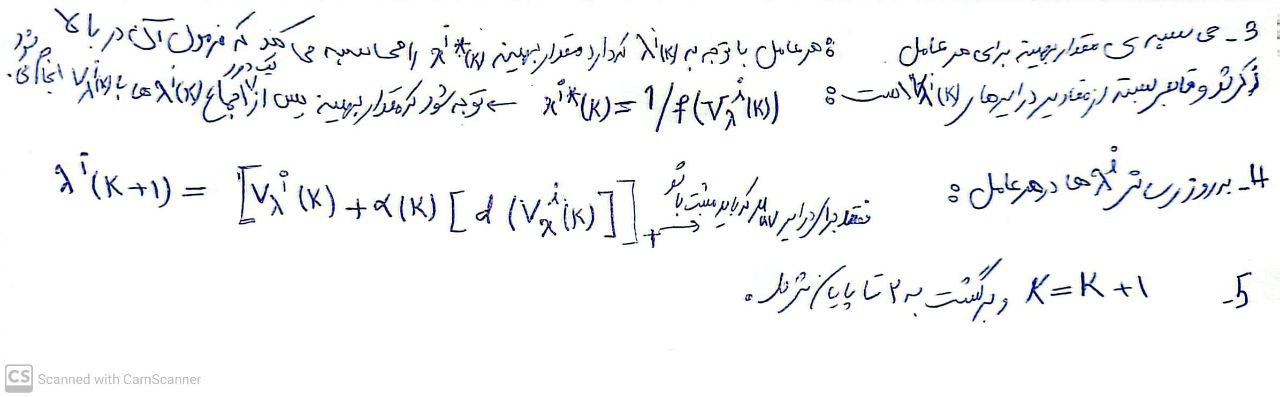 3- محاسبه ی مقدار بهینه برای هر عامل : هر عامل با توجه به λⁱ(k) که دارد مقدار بهینه xⁱ*(k) را محاسبه می کند که فرمول آن در بالا
ذکر شد و قاهر بسته از مقادیر در ایرها λⁱ(k) است : xⁱ*(k) = 1/f(Vλⁱ(k)) ← توجه شود که مقدار بهینه پس از یک دور اجماع λⁱ(k) ها با Vλⁱ(k) انجام می شود.
4- به روز رسانی λⁱ ها در هر عامل :
λⁱ(k+1) = [Vλⁱ(k) + α(k) [d(Vλⁱ(k)]]₊ → فقط برای که باید مثبت باشد
5- K = K + 1 و برگشت به ۲ تا پایان شرط.
CS Scanned with CamScanner